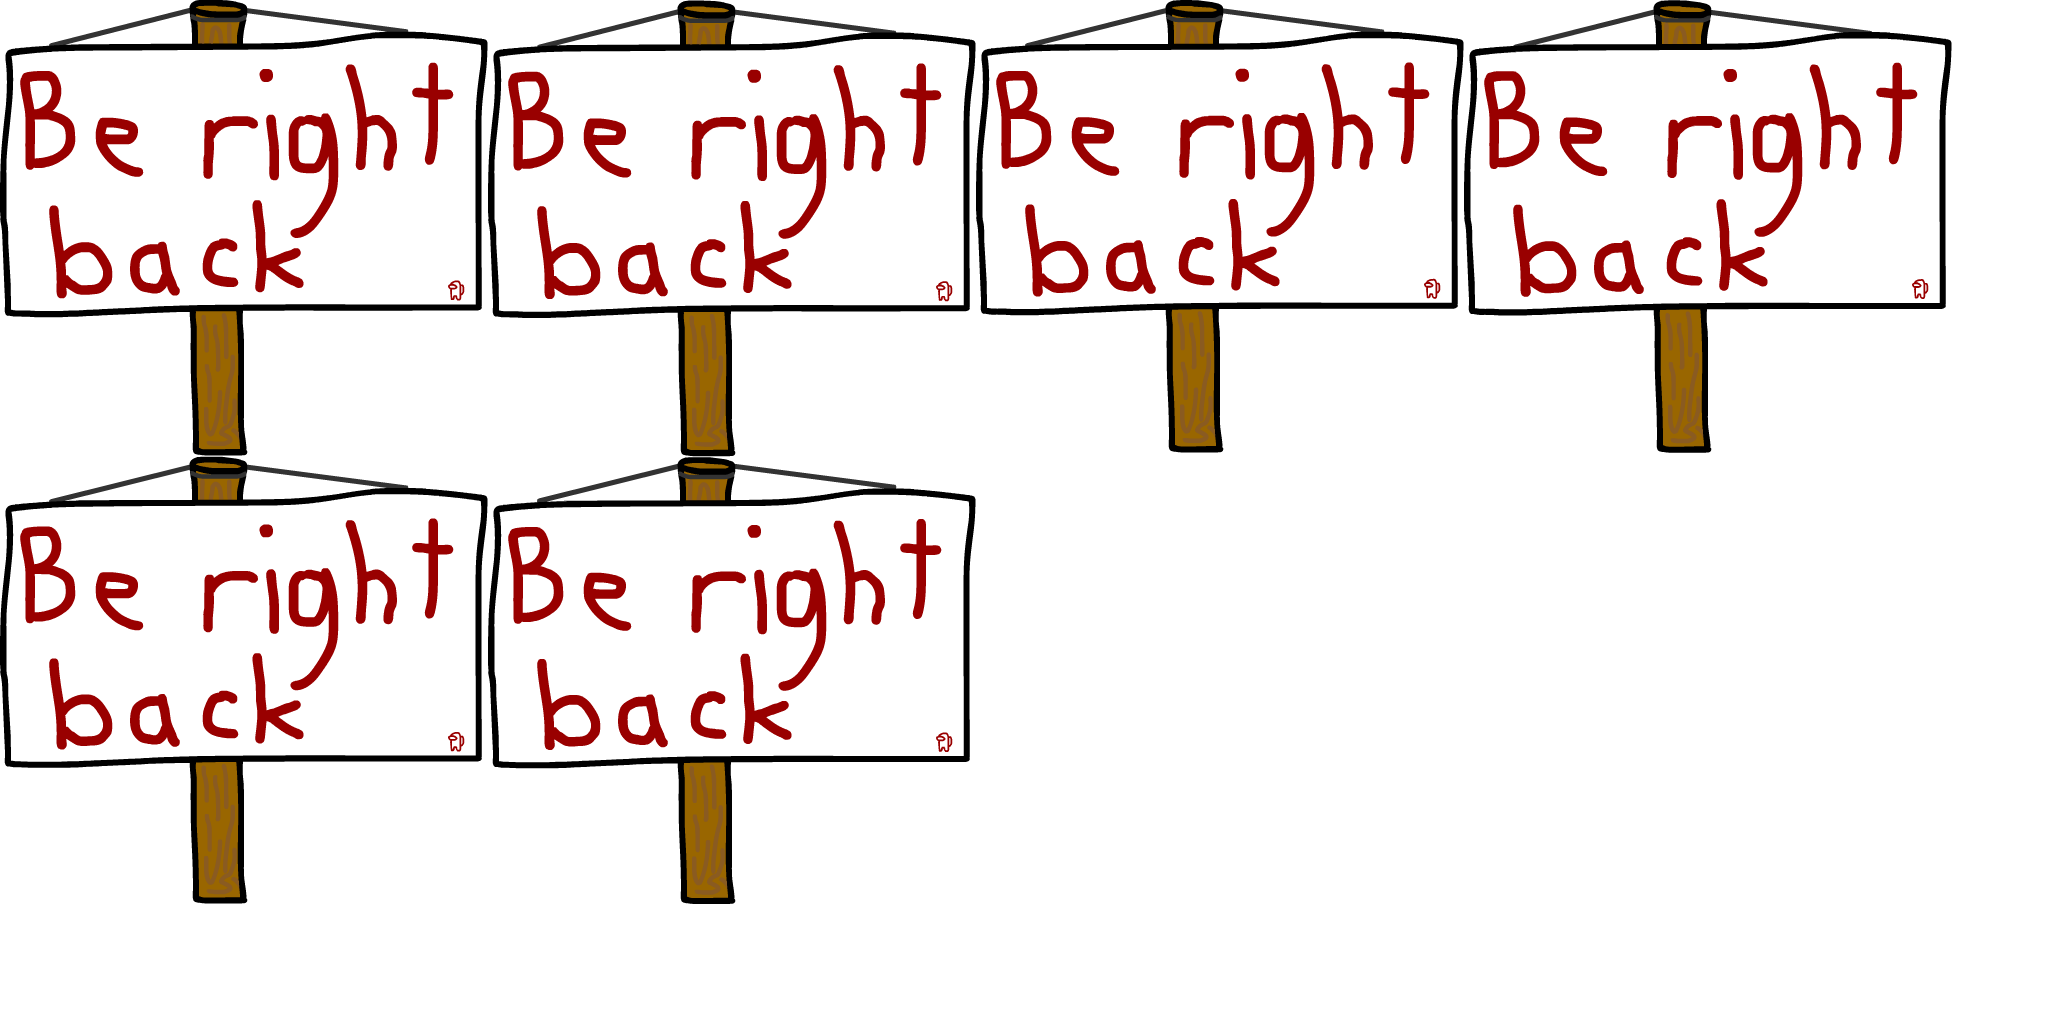 Be right
back
Be right
back
Be right
back
Be right
back
Be right
back
Be right
back